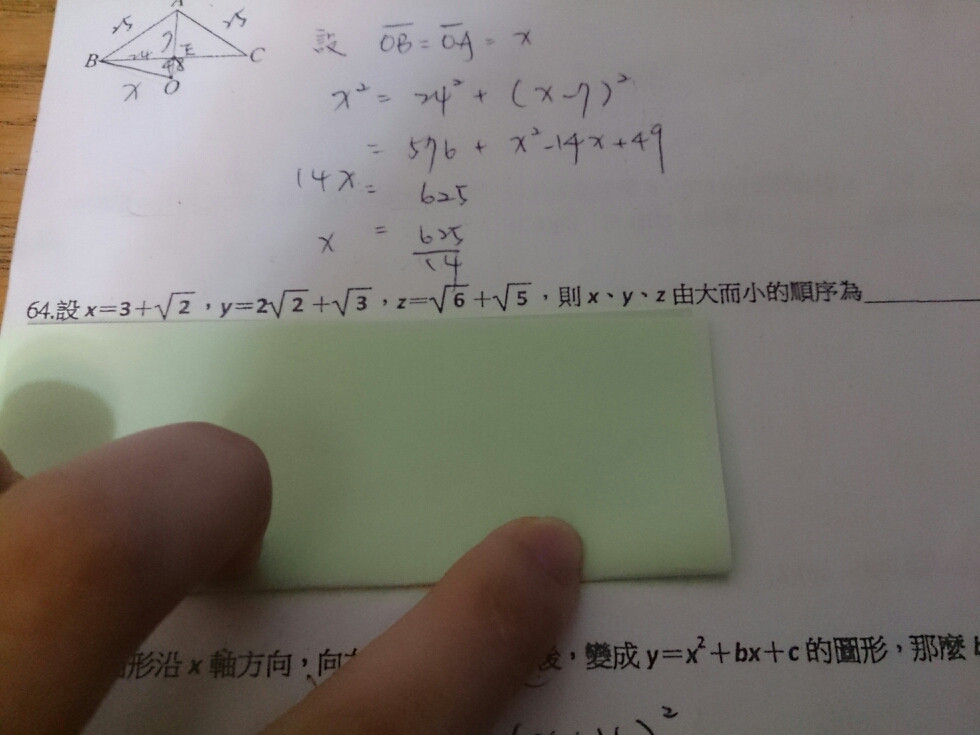 A
25 25
7
B 24 E C
48
x O
設 OB = OA = x
x² = 24² + (x-7)²
= 576 + x²-14x+49
14x = 625
x = 625/14
64.設 x=3+√2，y=2√2+√3，z=√6+√5，則 x、y、z 由大而小的順序為
形沿 x 軸方向，向 後，變成 y=x²+bx+c 的圖形，那麼 b
)²